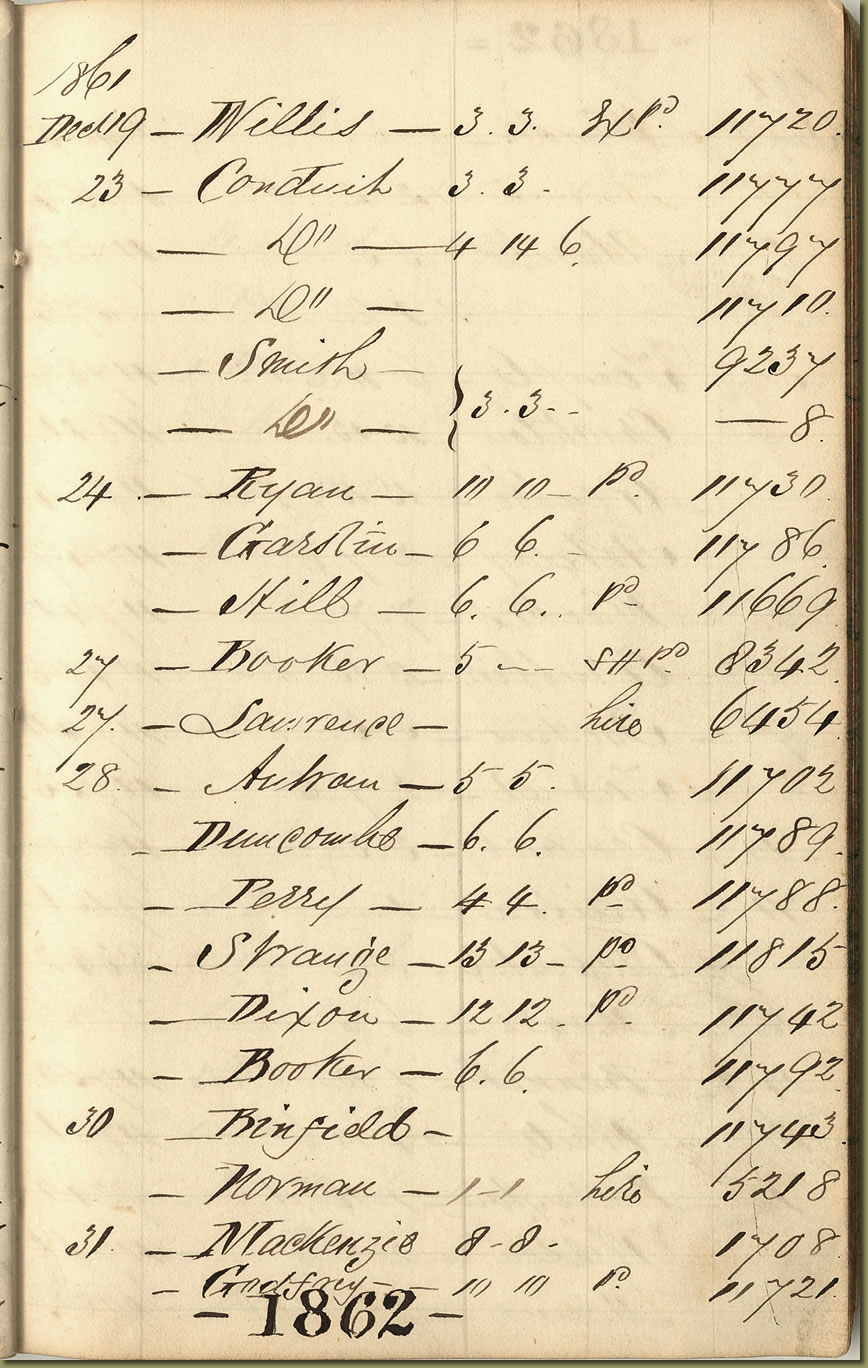 1861
Dec 19 — Willis — 3. 3. Ex Pd. 11720.
23 — Conduit 3. 3 - 11777
— Do — 4 14 6. 11797
— Do — 11710.
— Smith — 9237
— Do — } 3. 3 - - — 8.
24 — Ryan — 10 10 — Pd. 11730
— Garslin — 6 6. - 11786
— Hill — 6. 6. . Pd 11669
27 — Booker — 5 — — SH Pd 8342
27. — Lawrence — hire 6454
28. — Autran — 5 5. 11702
- Duncombe — 6. 6. 11789.
— Perry — 4 4. Pd 11788.
- Strange — 13 13 - Pd 11815
— Dixon — 12 12. Pd. 11742
- Booker — 6. 6. 11792
30 — Binfield - 11743
- Norman — 1-1 hire 5218
31. — Mackenzie 8-8- 1708
- Godfrey — 10 10 Pd 11721.
- 1862 -